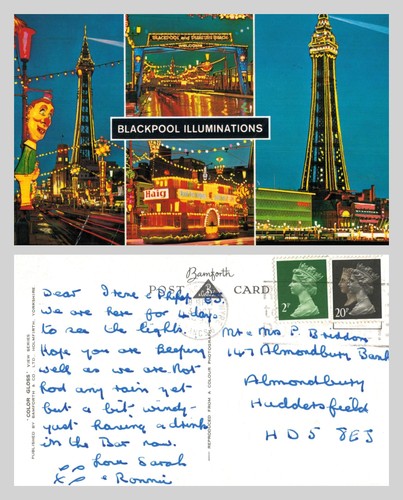 BLACKPOOL AND FYLDE
WELCOME
BLACKPOOL ILLUMINATIONS
Haig
Bamforth
POST CARD
Dear Irene & Philip
We are here for 4 days
to see the lights.
Hope you are keeping
well as we are. Not
had any rain yet
but a bit windy -
just having a drink
in the Bar now.
Love Sarah
& Ronnie
"COLOR GLOSS" VIEW SERIES
PUBLISHED BY BAMFORTH & CO. LTD. HOLMFIRTH, YORKSHIRE.
REPRODUCED FROM A COLOUR PHOTOGRAPH
2P
20P
Mr & Mrs P. Briddon
147 Almondbury Bank
Almondbury
Huddersfield
HD5 8EJ